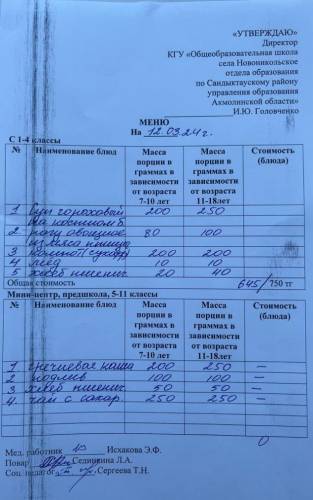 «УТВЕРЖДАЮ»
Директор
КГУ «Общеобразовательная школа
села Новоникольское
отдела образования
по Сандыктаускому району
управления образования
Акмолинской области»
И.Ю. Головченко
МЕНЮ
На 12.03.24г.
С 1-4 классы
№ Наименование блюд Масса порции в граммах в зависимости от возраста 7-10 лет Масса порции в граммах в зависимости от возраста 11-18лет Стоимость (блюда)
1 Суп гороховый 200 250
на костном б.
2 рагу овощное 80 100
из мяса птицы
3 компот (сухофр) 200 200
4 мёд 10 10
5 хлеб пшенич. 20 40
Общая стоимость 645/750 тг
Мини-центр, предшкола, 5-11 классы
№ Наименование блюд Масса порции в граммах в зависимости от возраста 7-10 лет Масса порции в граммах в зависимости от возраста 11-18лет Стоимость (блюда)
1 Гречневая каша 200 250 —
2 подлив 100 100 —
3 хлеб пшенич. 50 50 —
4. чай с сахар. 250 250 —
Мед. работник Исхакова Э.Ф.
Повар Сединкина Л.А.
Соц. педагог Сергеева Т.Н.